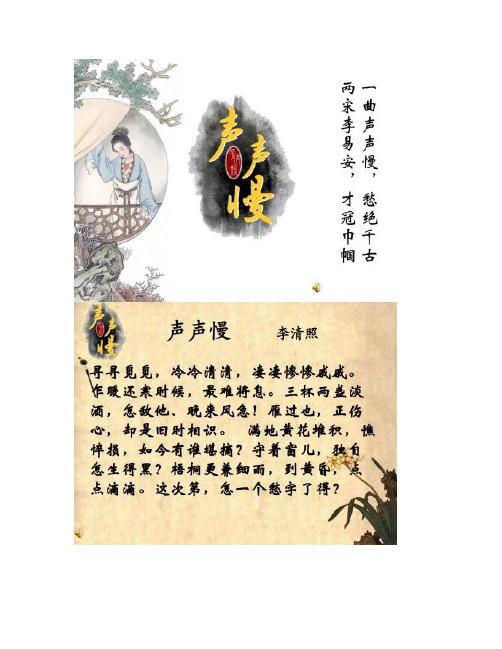 一曲声声慢，愁绝千古
两宋李易安，才冠巾帼
声声慢
声声慢
声声慢 李清照
寻寻觅觅，冷冷清清，凄凄惨惨戚戚。
乍暖还寒时候，最难将息。三杯两盏淡
酒，怎敌他、晚来风急！雁过也，正伤
心，却是旧时相识。 满地黄花堆积，憔
悴损，如今有谁堪摘？守着窗儿，独自
怎生得黑？梧桐更兼细雨，到黄昏，点
点滴滴。这次第，怎一个愁字了得？